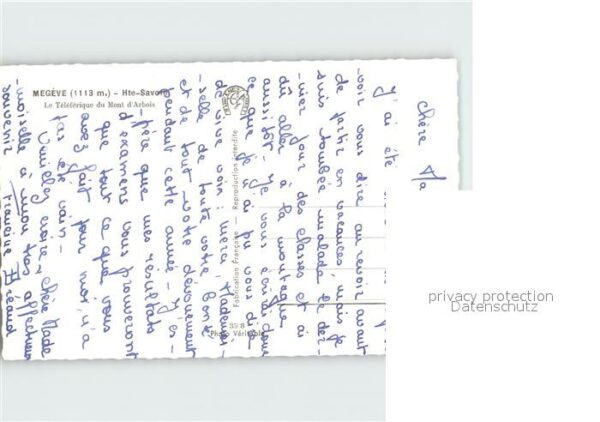 MEGÈVE (1113 m.) - Hte-Savoie
Le Téléférique du Mont d'Arbois
Fabrication Française — Reproduction interdite
Photo Véritable
chère Ma
J'ai été
voir vous dire au revoir avant
de partir en vacances, mais je
suis tombée malade le der-
nier jour des classes et ai
dû aller à la montagne
aussitôt - Je vous écris donc
ce que je n'ai pu vous dire
de vive voix : merci, Mademoi-
selle de toute votre bonté
et de tout votre dévouement
pendant cette année - J'es-
père que mes résultats
d'examens vous prouveront
que tout ce que vous
avez fait pour moi, n'a
pas été vain -
Veuillez croire, chère Made
moiselle à mon très affectueux
souvenir
privacy protection
Datenschutz